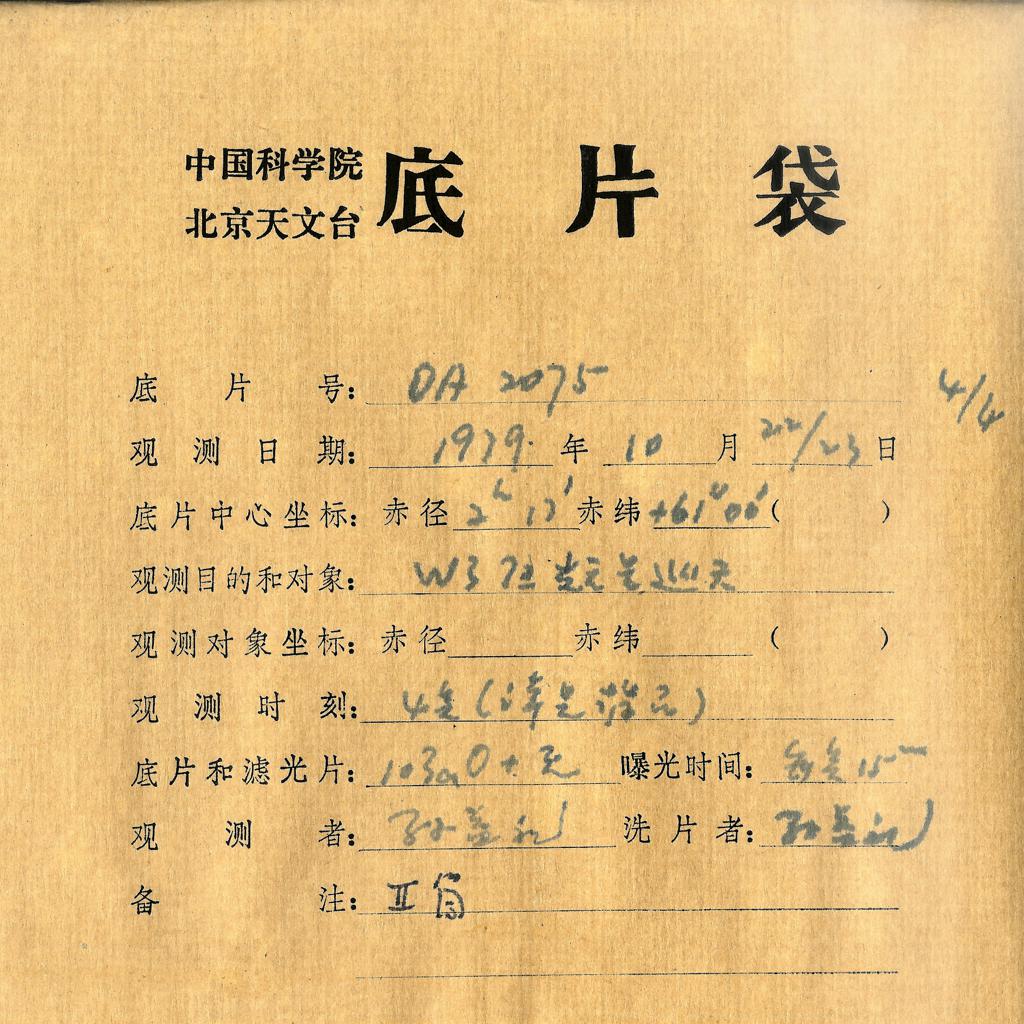 中国科学院
北京天文台
底片袋
底片号: DA 2075
4/4
观测日期: 1979 年 10 月 22/23 日
底片中心坐标: 赤径 2h 17′ 赤纬 +61°00′ ( )
观测目的和对象: W3 巡天
观测对象坐标: 赤径 赤纬 ( )
观测时刻: 4
底片和滤光片: 103aO + 无 曝光时间: 15m
观测者: 孙益礼 洗片者: 孙益礼
备注: II